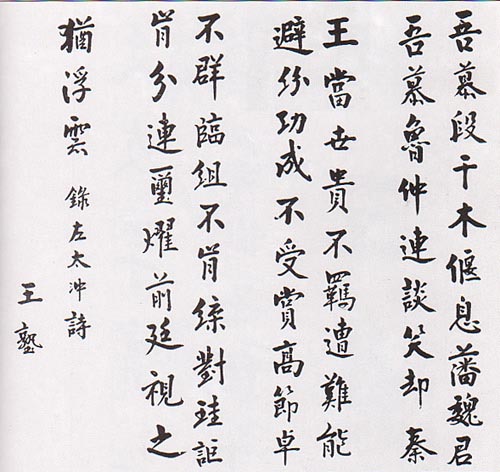 吾慕段干木偃息藩魏君
吾慕魯仲連談笑却秦
王當世貴不羈遭難能
避紛功成不受賞高節卓
不群臨組不肯緤對珪詎
肯分連璽燿前廷視之
猶浮雲 錄左太冲詩
王